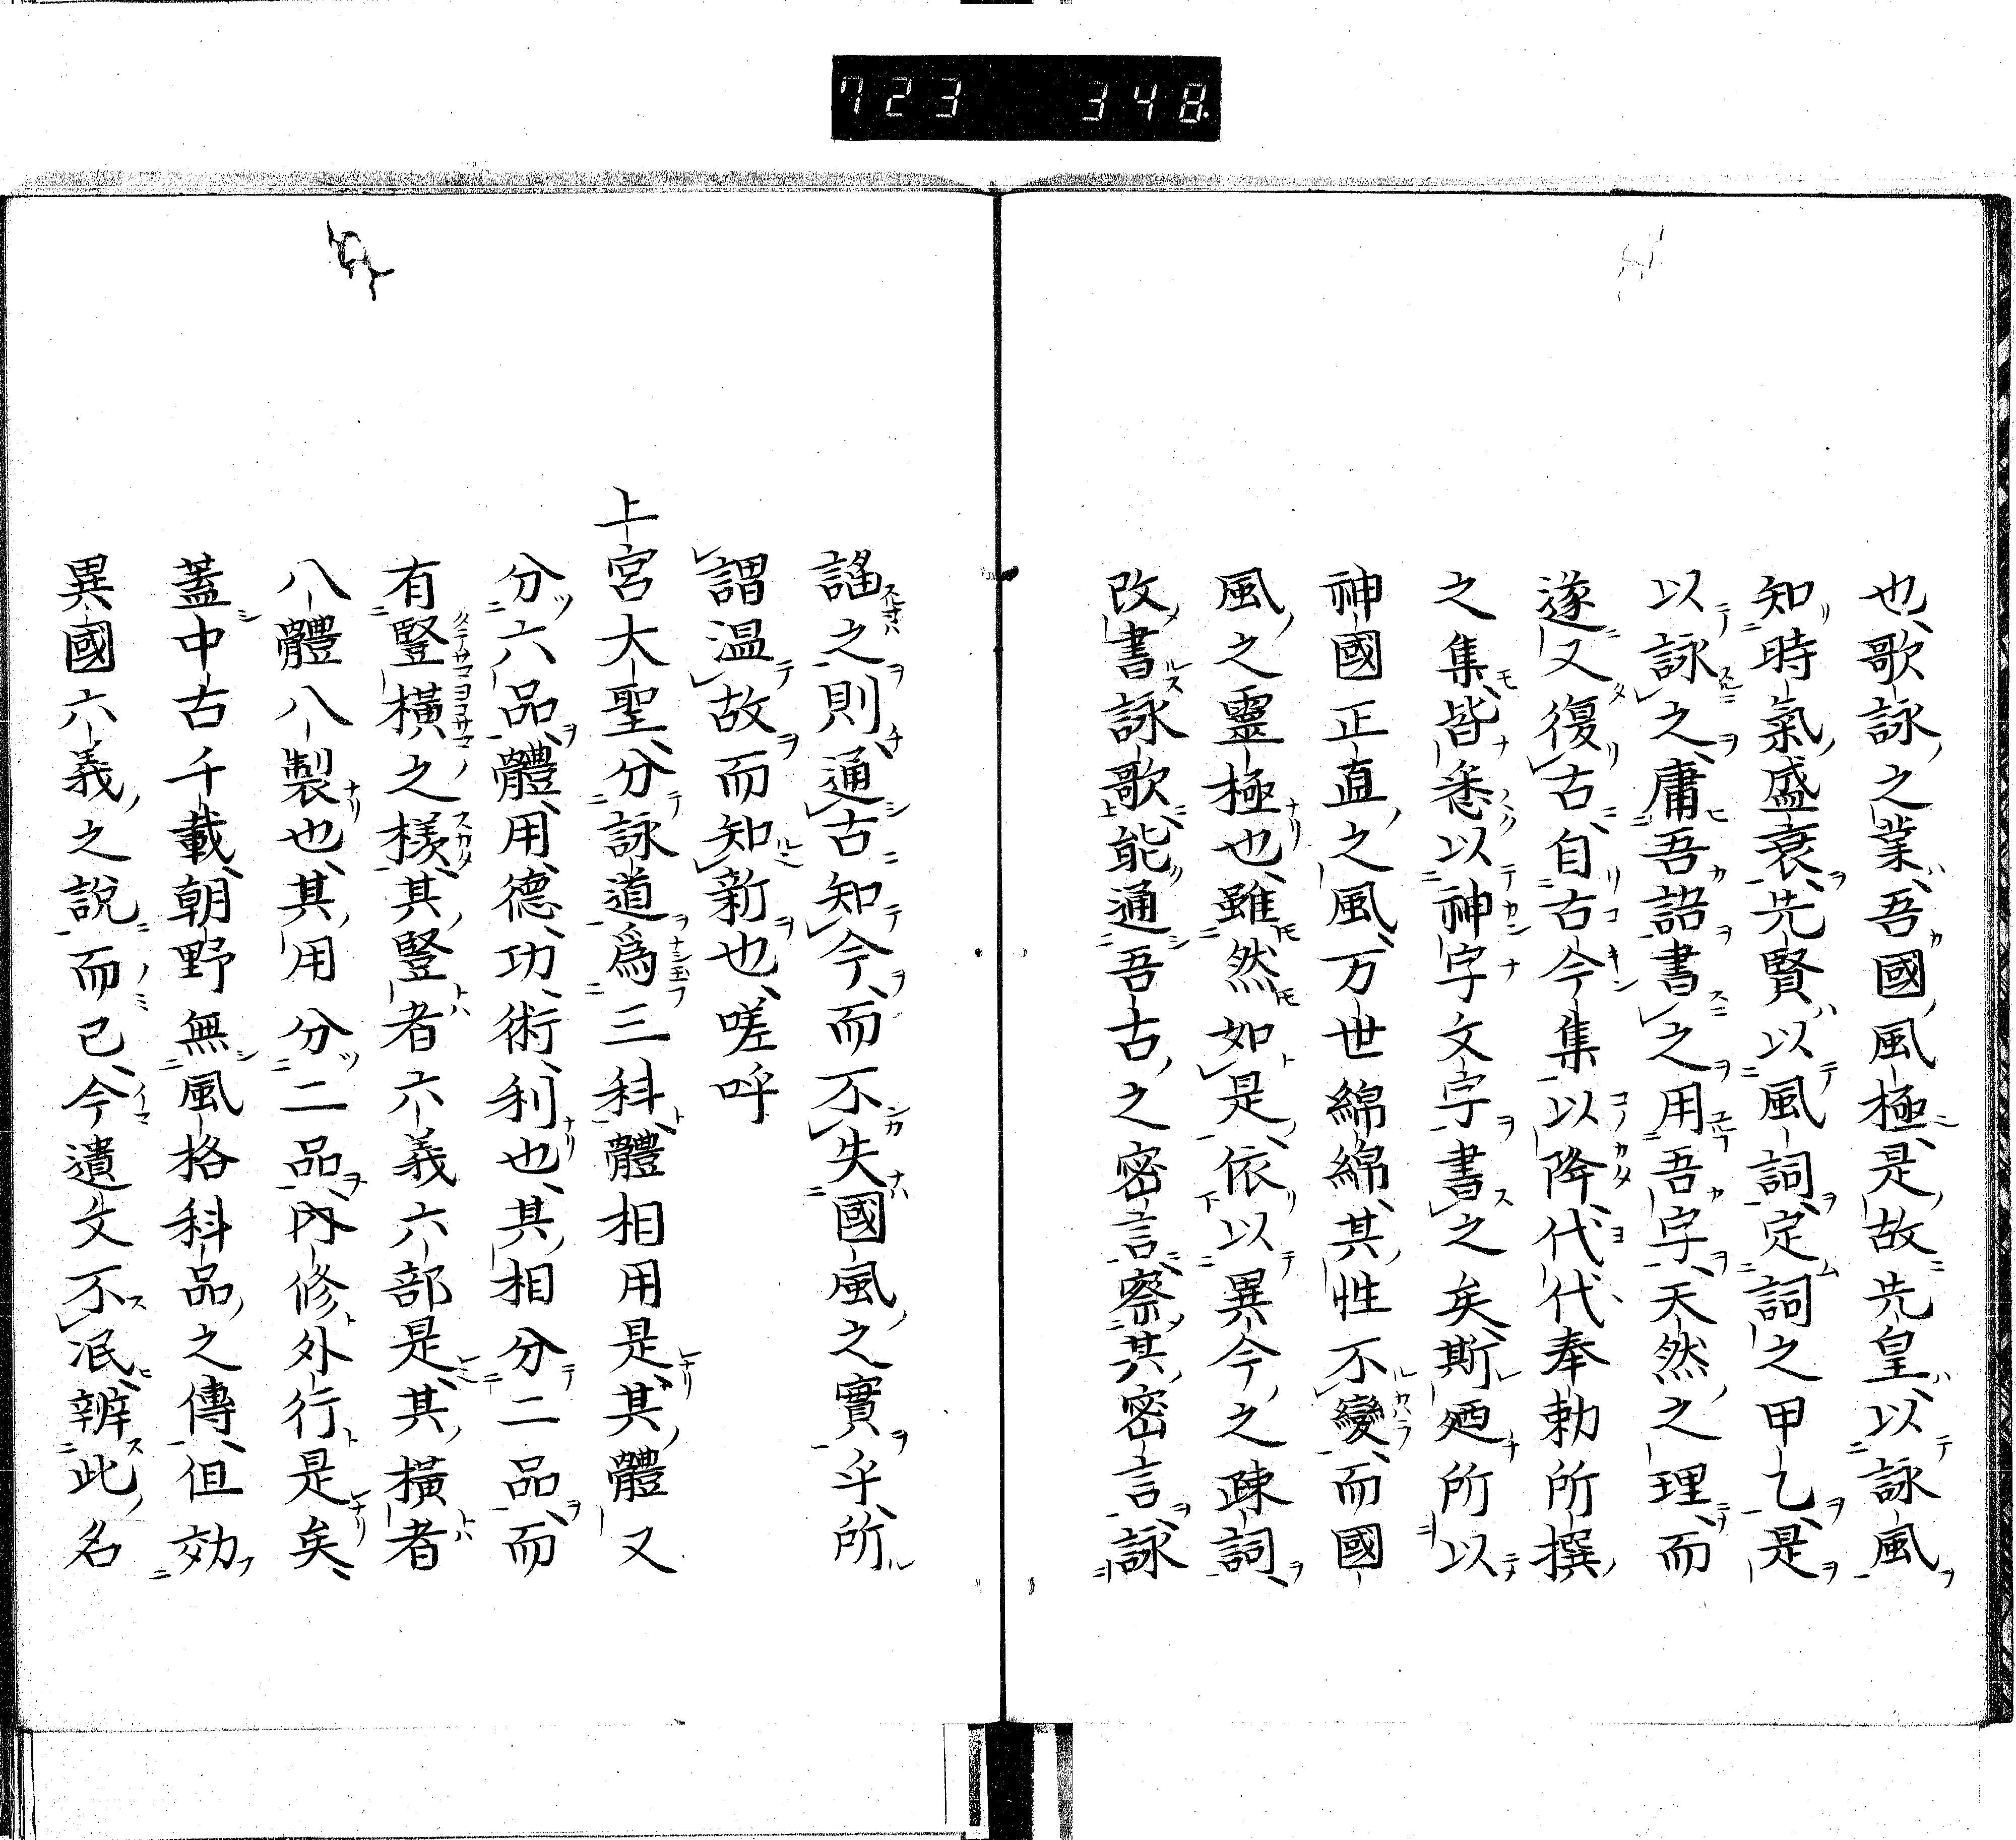 723 348.
也歌詠之業吾國風極是故先皇以詠風
知時氣盛衰先賢以風詞定詞之甲乙是
以詠之庸吾語書之用吾字天然之理而
遂又復古自古今集以降代代奉勅所撰
之集皆悉以神字文字書之矣斯廼所以
神國正直之風万世綿綿其性不變而國
風之靈極也雖然如是依以異今之疎詞
改書詠歌能通吾古之密言察其密言詠
謠之則通古知今而不失國風之實乎所
謂温故而知新也嗟呼
上宮大聖分詠道爲三科體相用是其體又
分六品體用德功術利也其相分二品而
有豎橫之樣其豎者六義六部是其橫者
八體八製也其用分二品內修外行是矣
蓋中古千載朝野無風格科品之傳但効
異國六義之說而已今遺文不泯辨此名